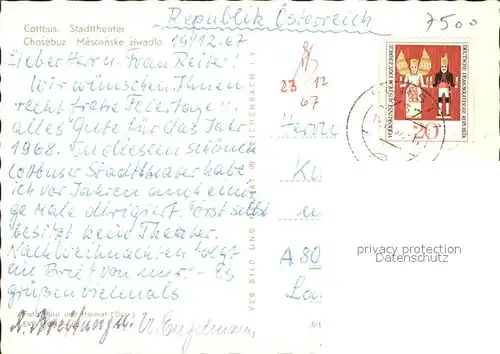 Cottbus. Stadttheater
Chośebuz Měsćańske źiwadło
Republik Österreich
7500
19/12.67
Lieber Herr u. Frau Reiter!
Wir wünschen Ihnen
recht frohe Feiertage u.
alles Gute für das Jahr
1968. In diesem schönen
Cottbuser Stadttheater habe
ich vor Jahren auch eini-
ge Male dirigiert. Forst selbst
besitzt kein Theater.
Nach Weihnachten folgt
ein Brief von mir. - Es
grüßen vielmals
U. Engelmann
23 12
67
Herrn
A 80
DEUTSCHE DEMOKRATISCHE REPUBLIK
VOLKSKUNST AUS DEM ERZGEBIRGE
20
VEB BILD UND HEIMAT REICHENBACH I. V.
Foto: Bild und Heimat
privacy protection
AKPool.de